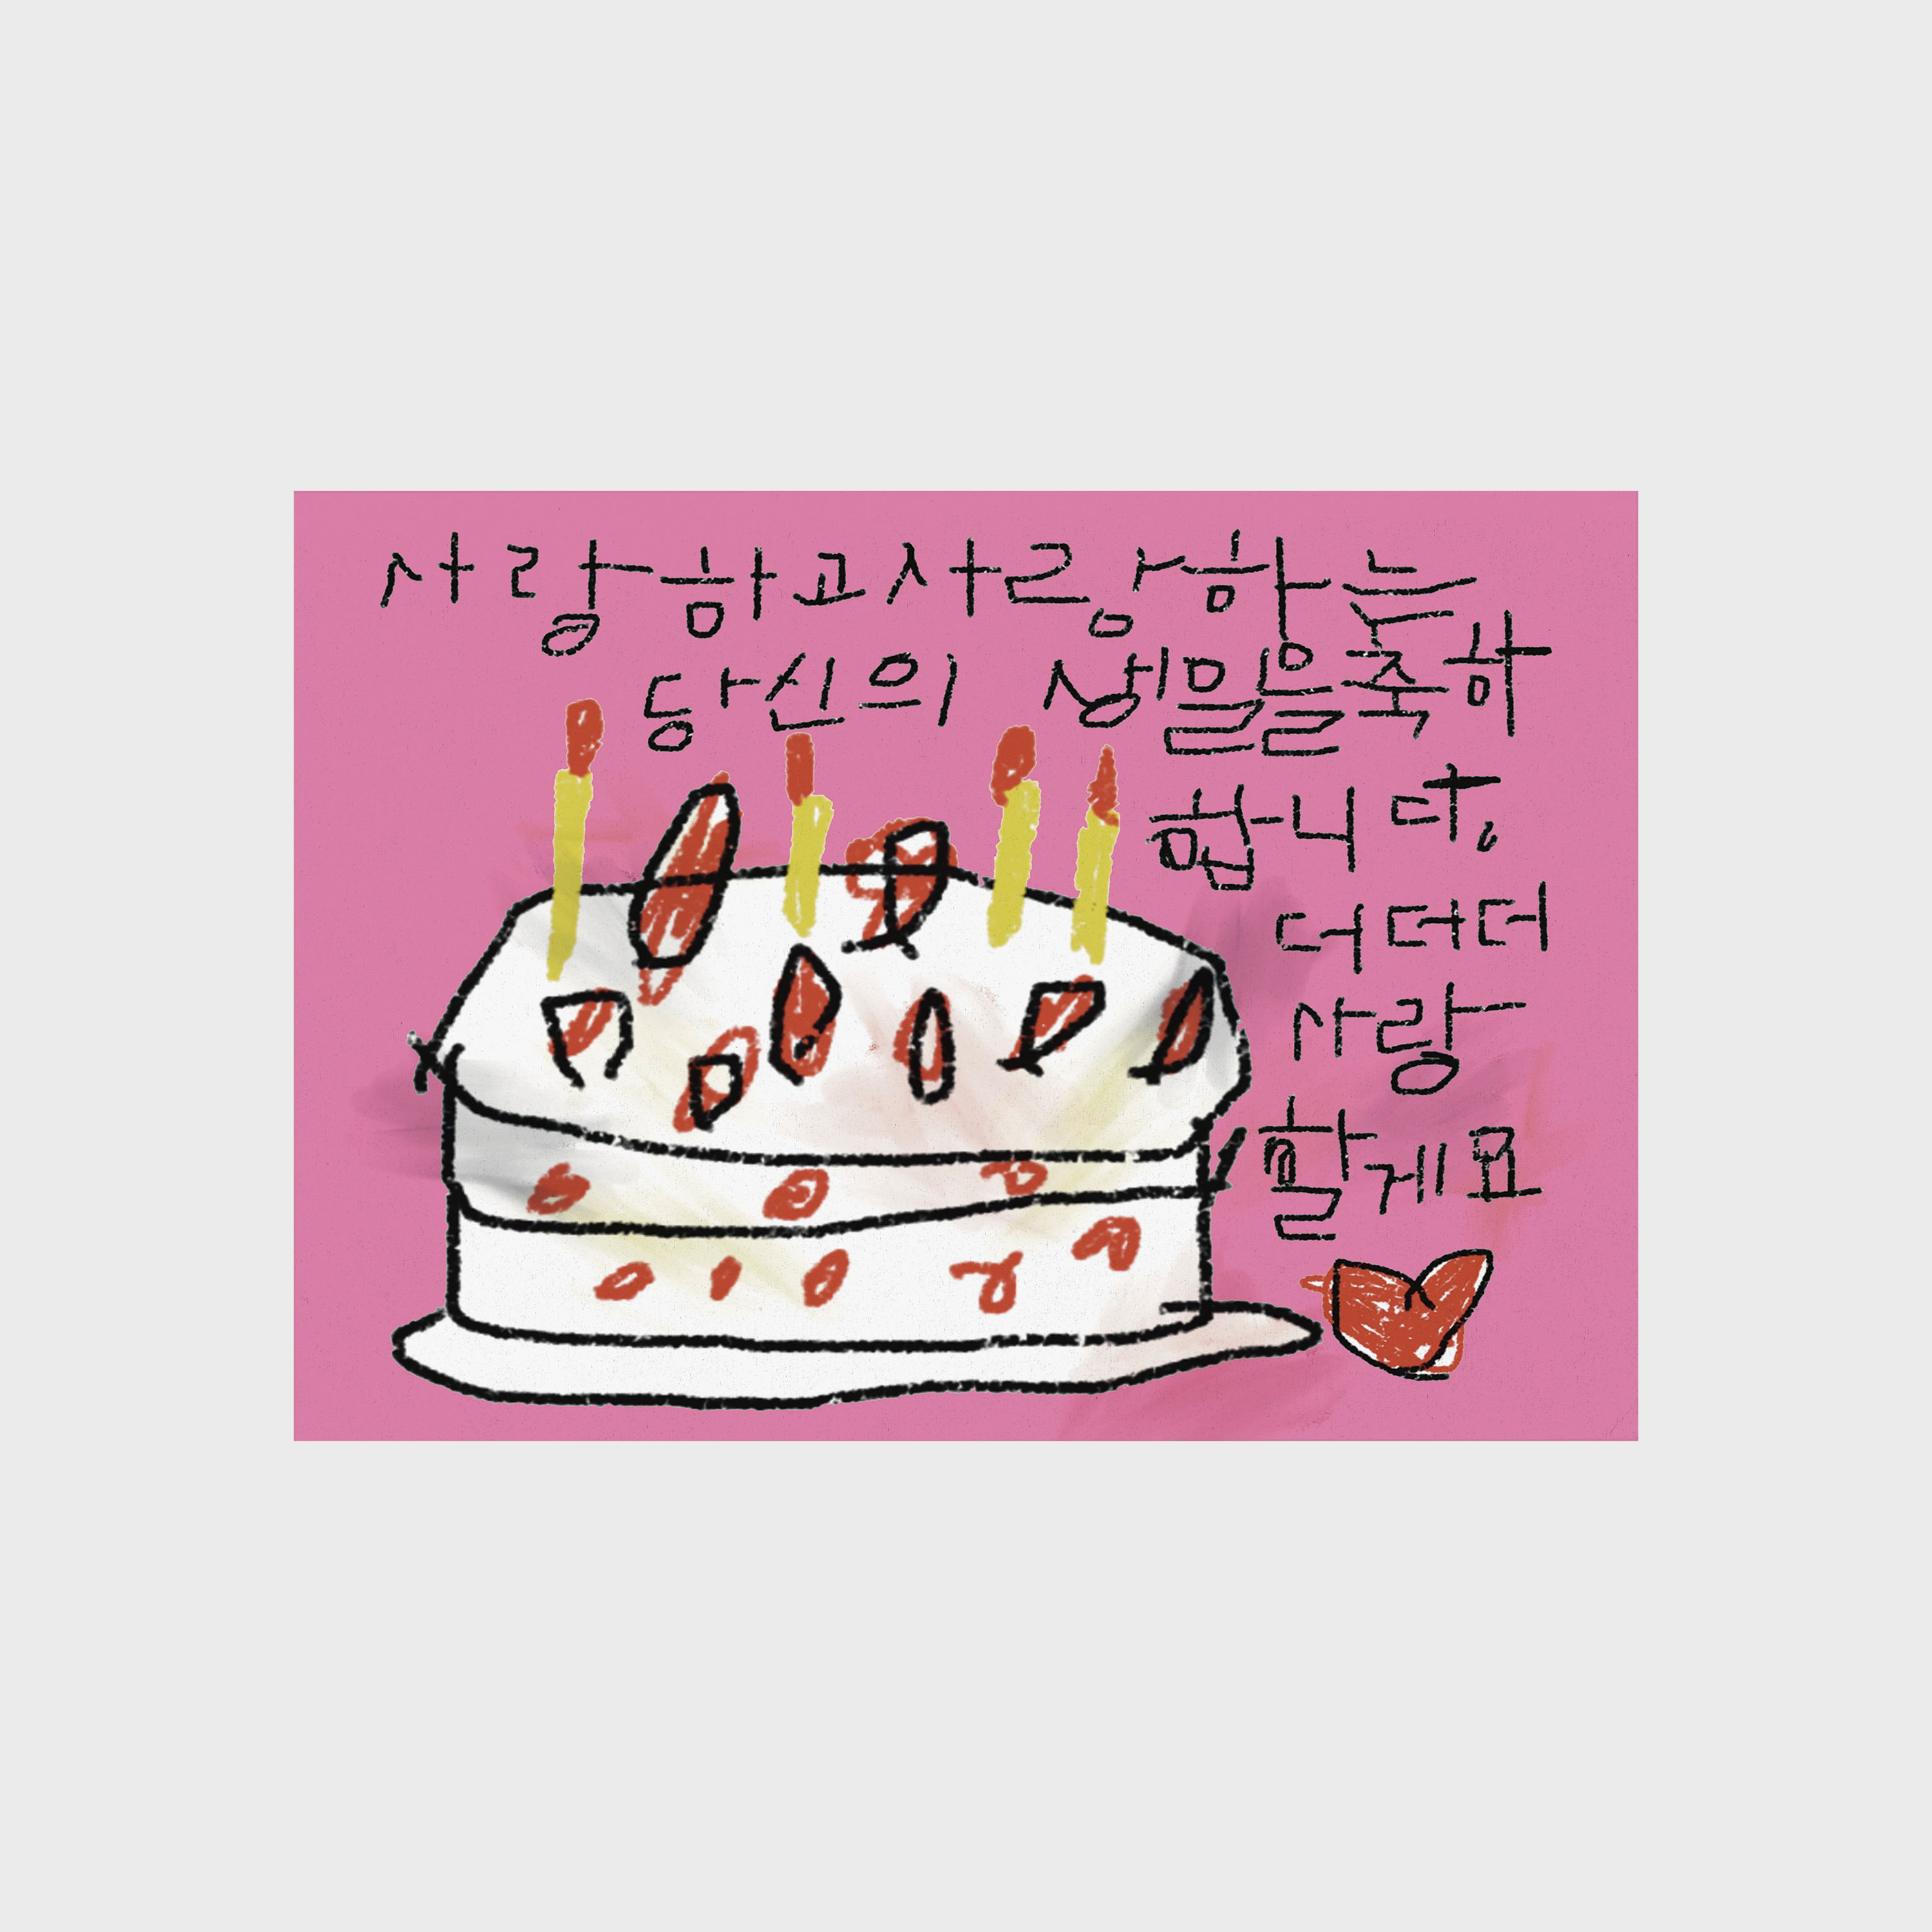 사랑하고사랑하는
당신의 생일을축하
합니다.
더더더
사랑
할게요